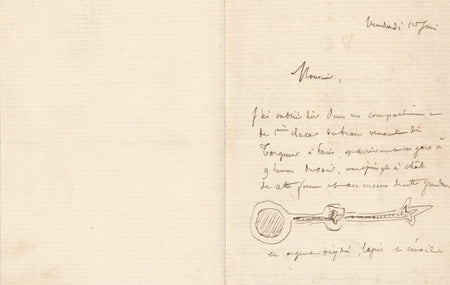 Vendredi 15 Juin
Monsieur,
J'ai oublié hier dans un compartiment
de 1ère classe du train venant de
à Paris, et arrivant en gare à
9 heures du soir, une épingle à châle
de cette forme et au moins de cette grandeur
en argent oxydé, lapis et